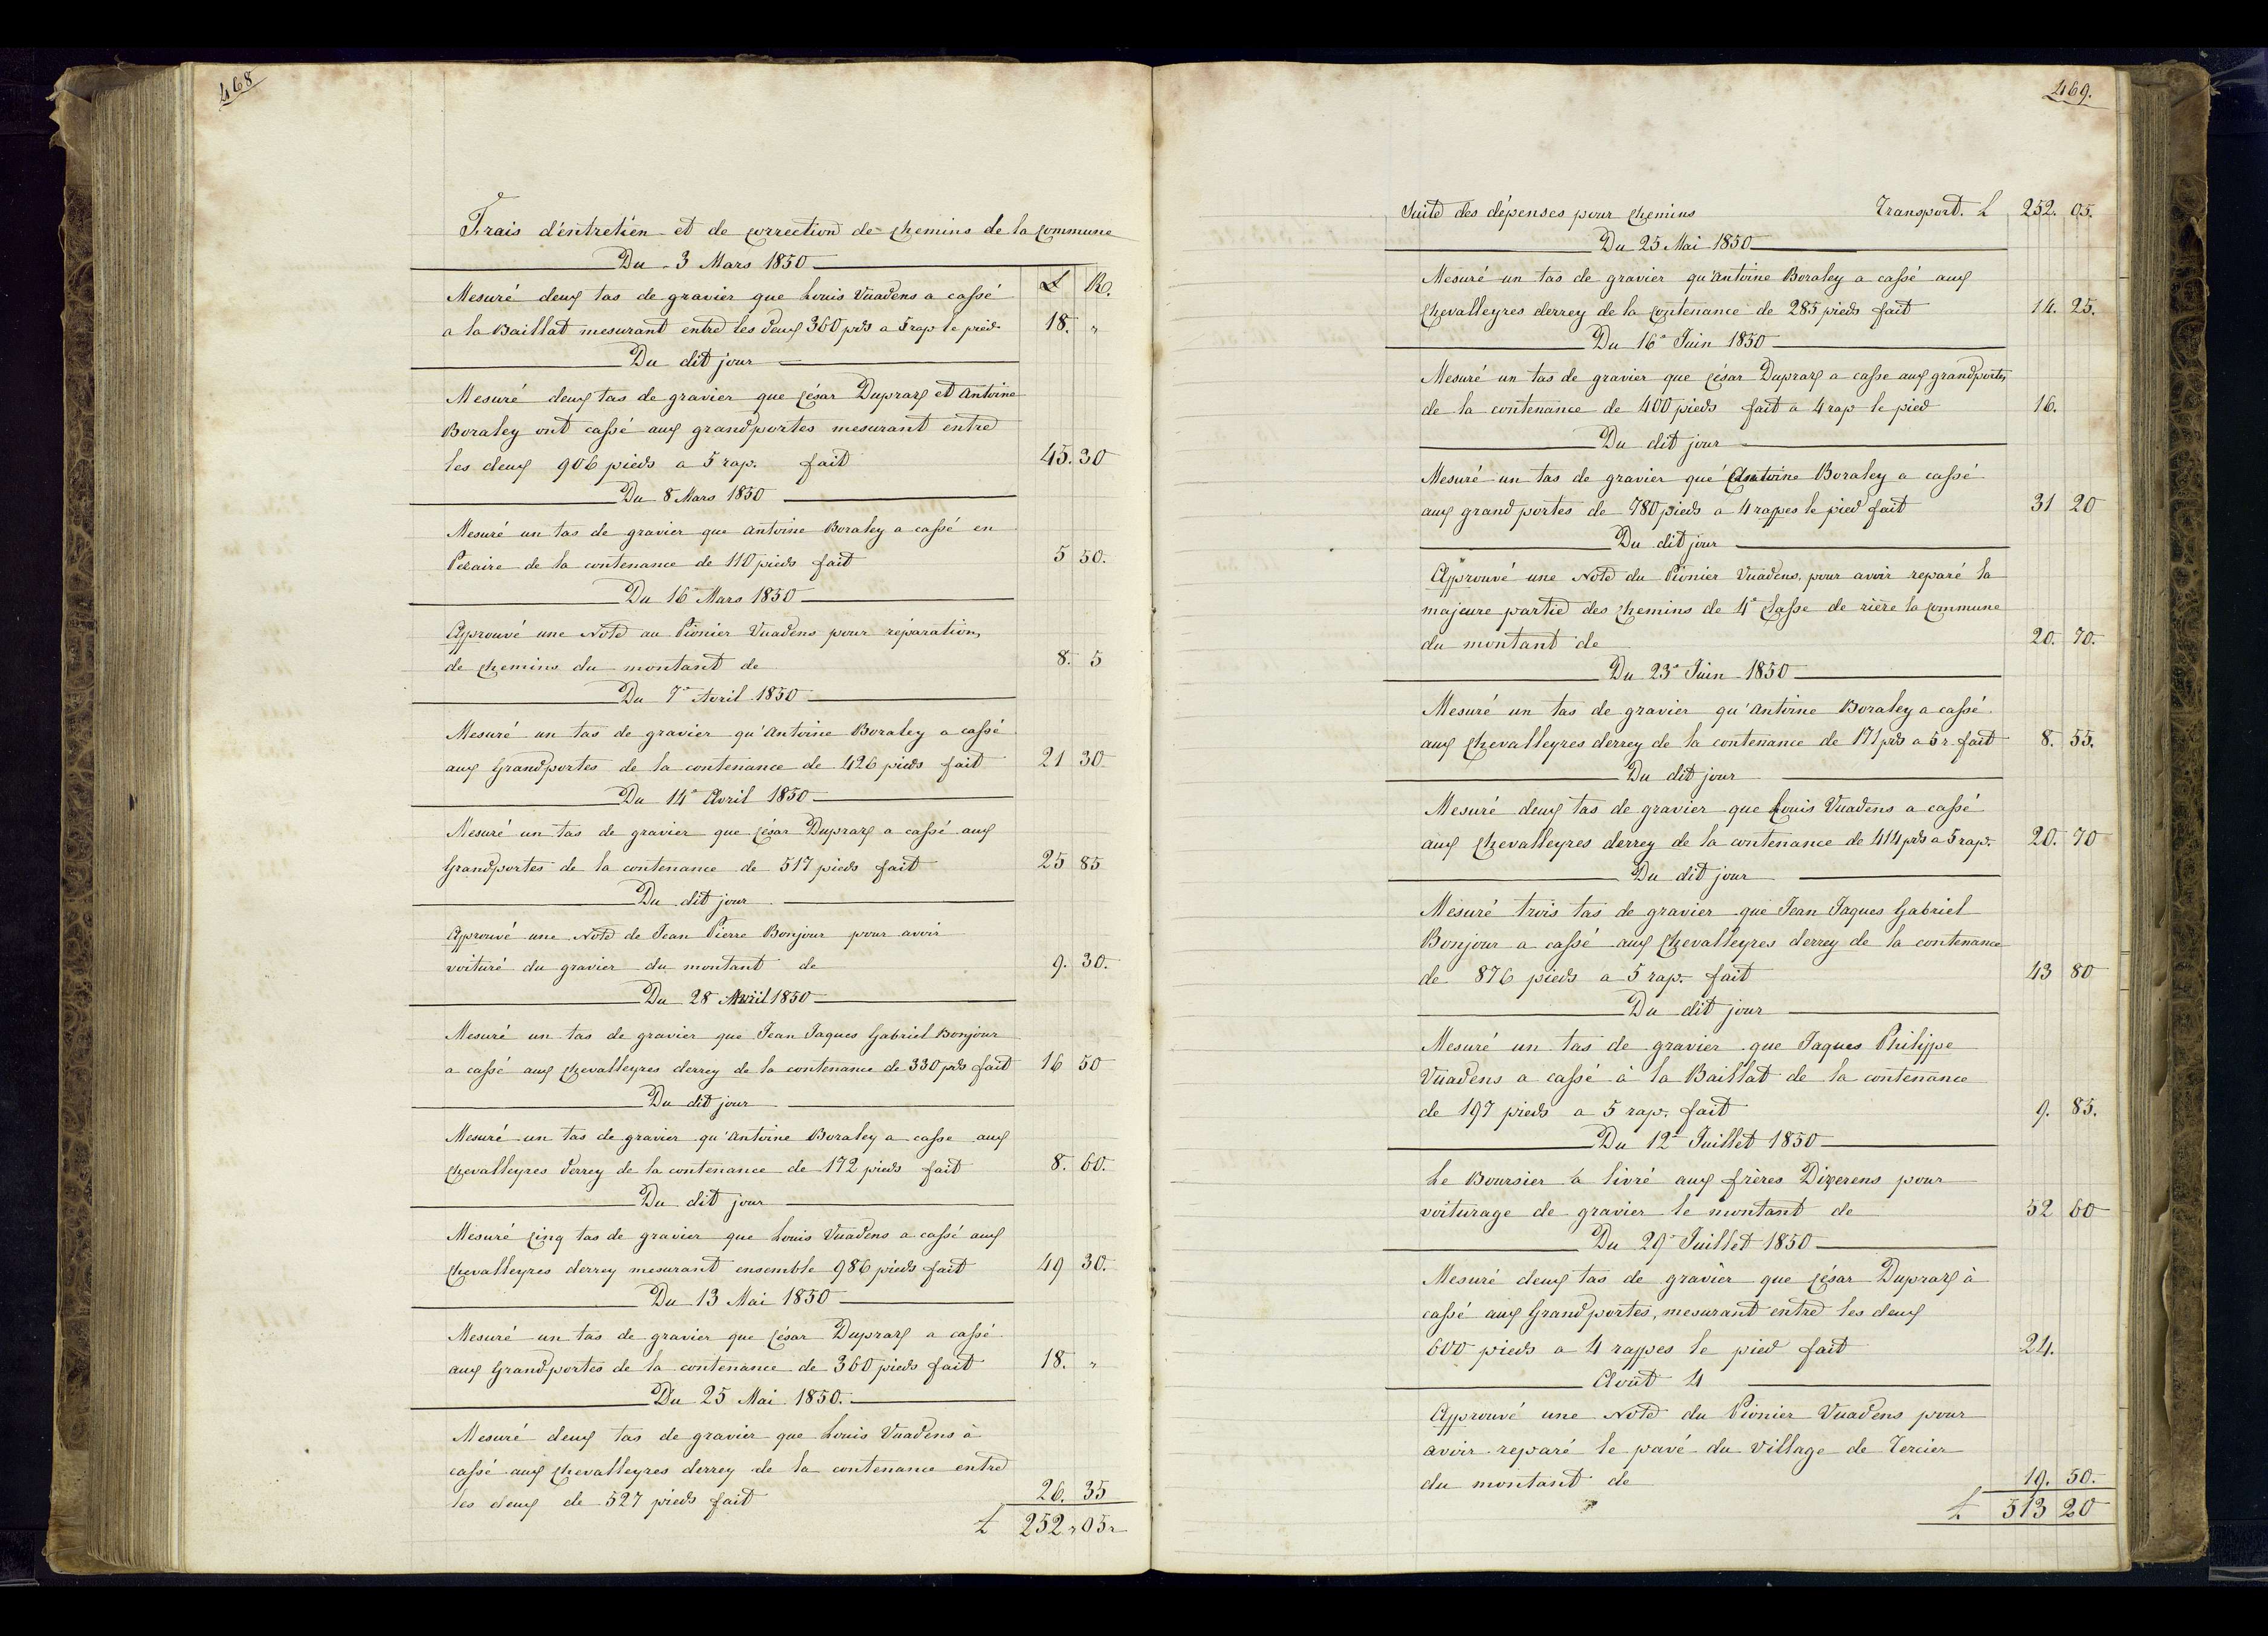 468
Frais d'entretien et de correction de chemins de la commune
Du 3 Mars 1850
Mesuré deux tas de gravier que Louis Vuadens a cassé L R.
a la Baillat mesurant entre les deux 360 pds a 5 rap le pied 18. "
Du dit jour
Mesuré deux tas de gravier que César Dupraz et Antoine
Boraley ont cassé aux grandportes mesurant entre
les deux 906 pieds a 5 rap. fait 45. 30
Du 8 Mars 1850
Mesuré un tas de gravier que Antoine Boraley a cassé en
de la contenance de 110 pieds fait 5 50.
Du 16 Mars 1850
Approuvé une Note au Pionier Vuadens pour réparation,
de chemins du montant de 8. 5
Du 7e Avril 1850
Mesuré un tas de gravier qu'Antoine Boraley a cassé
aux Grandportes de la contenance de 426 pieds fait 21 30
Du 14e Avril 1850
Mesuré un tas de gravier que César Dupraz a cassé aux
Grandportes de la contenance de 517 pieds fait 25 85
Du dit jour
Approuvé une Note de Jean Pierre Bonjour pour avoir
voituré du gravier du montant de 9. 30.
Du 28 Avril 1850
Mesuré un tas de gravier que Jean Jaques Gabriel Bonjour
a cassé aux Chevalleyres derrey de la contenance de 330 pds fait 16 50
Du dit jour
Mesuré un tas de gravier qu'Antoine Boraley a casse aux
Chevalleyres derrey de la contenance de 172 pieds fait 8. 60.
Du dit jour
Mesuré cinq tas de gravier que Louis Vuadens a cassé aux
Chevalleyres derrey mesurant ensemble 986 pieds fait 49 30.
Du 13 Mai 1850
Mesuré un tas de gravier que César Dupraz a cassé
aux Grandportes de la contenance de 360 pieds fait 18. "
Du 25 Mai 1850.
Mesuré deux tas de gravier que Louis Vuadens à
cassé aux Chevalleyres derrey de la contenance entre
les deux de 527 pieds fait 26. 35
L 252 " 05 "
469.
Suite des dépenses pour chemins Transport. L 252. 05.
Du 25 Mai 1850
Mesuré un tas de gravier qu'Antoine Boraley a cassé aux
Chevalleyres derrey de la contenance de 285 pieds fait 14. 25.
Du 16e Juin 1850
Mesuré un tas de gravier que César Dupraz a casse aux grandportes
de la contenance de 400 pieds fait a 4 rap le pied 16.
Du dit jour
Mesuré un tas de gravier que Antoine Boraley a cassé
aux grand portes de 780 pieds a 4 rappes le pied fait 31 20
Du dit jour
Approuvé une Note du Pionier Vuadens, pour avoir reparé la
majeure partie des chemins de 4e Classe de rière la commune
du montant de 20. 70.
Du 23e Juin 1850
Mesuré un tas de gravier qu'Antoine Boraley a cassé
aux Chevalleyres derrey de la contenance de 171 pds a 5 r. fait 8. 55.
Du dit jour
Mesuré deux tas de gravier que Louis Vuadens a cassé
aux Chevalleyres derrey de la contenance de 414 pds a 5 rap. 20. 70
Du dit jour
Mesuré trois tas de gravier que Jean Jaques Gabriel
Bonjour a cassé aux Chevalleyres derrey de la contenance
de 876 pieds a 5 rap. fait 43 80
Du dit jour
Mesuré un tas de gravier que Jaques Philippe
Vuadens a cassé à la Baillat de la contenance
de 197 pieds a 5 rap. fait 9. 85.
Du 12e Juillet 1850
Le Boursier a livré aux frères Dizerens pour
voiturage de gravier le montant de 52 60
Du 29e Juillet 1850
Mesuré deux tas de gravier que César Dupraz à
cassé aux Grand portes, mesurant entre les deux
600 pieds a 4 rappes le pied fait 24.
Août 4
Approuvé une Note du Pionier Vuadens pour
avoir reparé le pavé du village de Tercier
du montant de 19. 50.
L 513 20